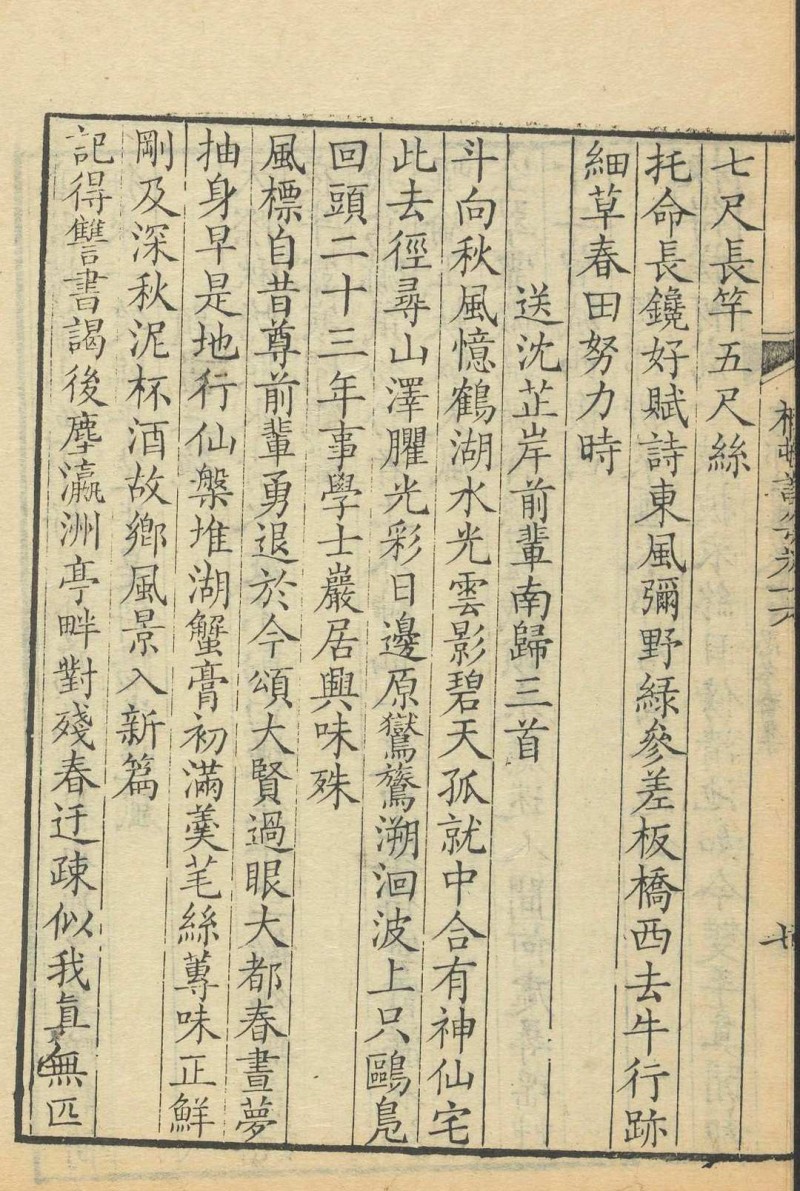 七尺長竿五尺絲
托命長鑱好賦詩東風彌野綠參差板橋西去牛行跡
細草春田努力時
送沈芷岸前輩南歸三首
斗向秋風憶鶴湖水光雲影碧天孤就中合有神仙宅
此去徑尋山澤臞光彩日邊原鸑鷟溯洄波上只鷗鳧
回頭二十三年事學士巖居興味殊
風標自昔尊前輩勇退於今頌大賢過眼大都春晝夢
抽身早是地行仙槃堆湖蟹膏初滿羹芼絲蓴味正鮮
剛及深秋泥杯酒故鄉風景入新篇
記得讐書謁後塵瀛洲亭畔對殘春迂疎似我真無匹